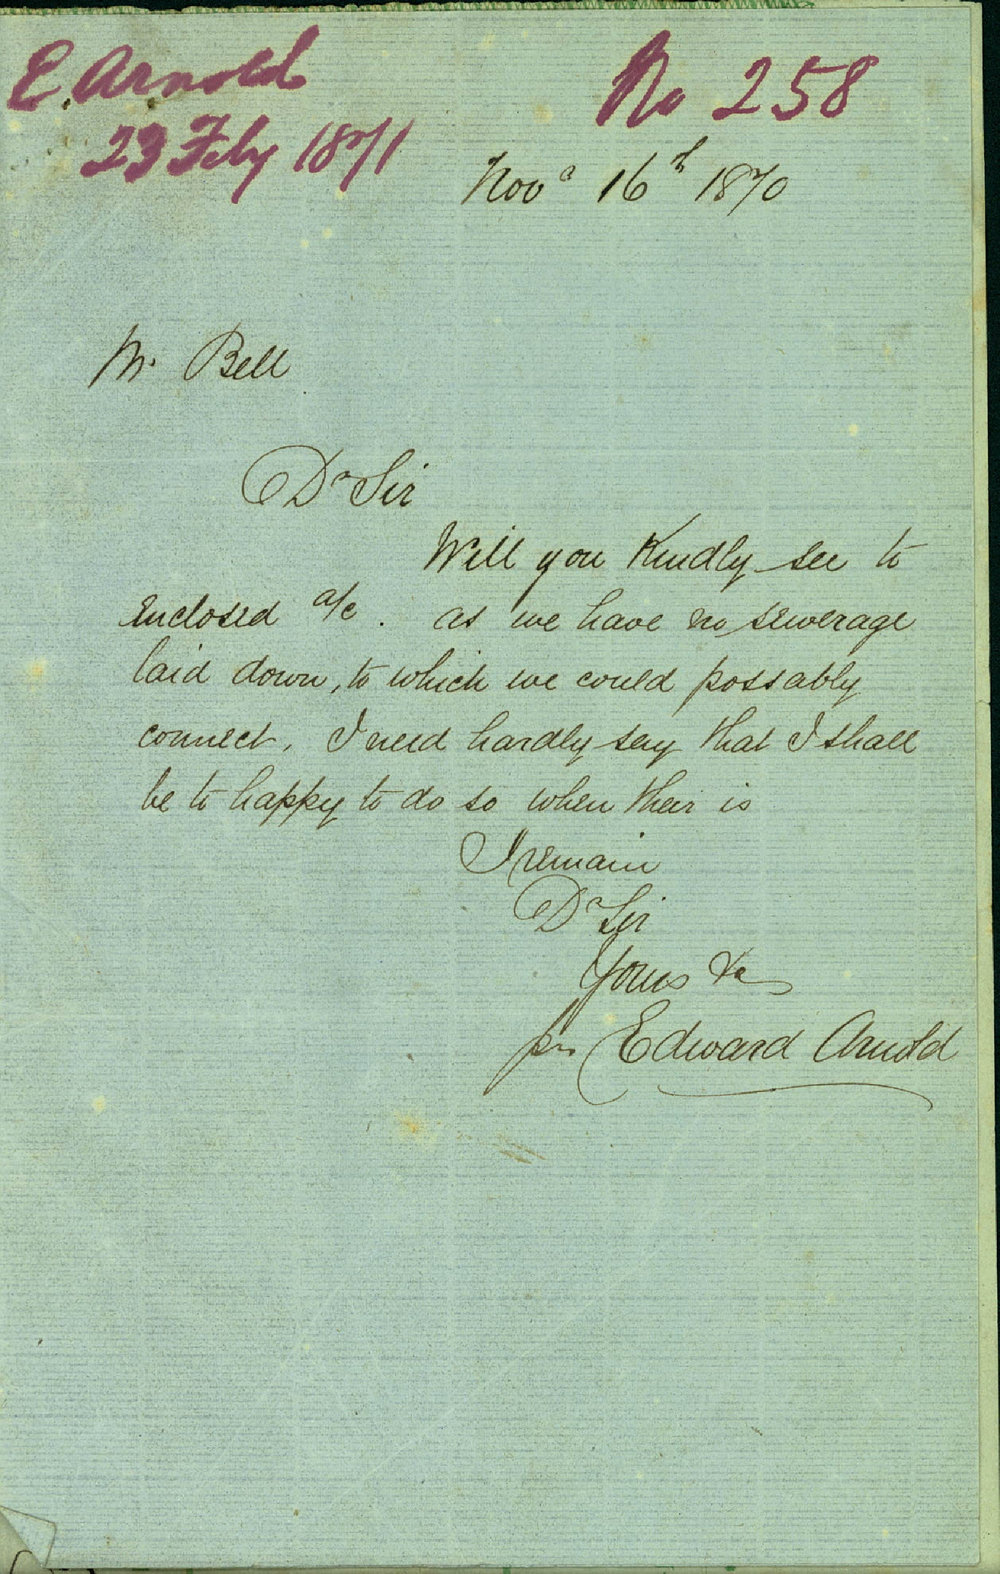 E. Arnold
No 258
23 Feby 1871
Novr 16th 1870
Mr Bell
Dr Sir
Will you Kindly see to
Enclosed a/c. as we have no sewerage
laid down, to which we could possably
connect. I need hardly say that I shall
be to happy to do so when their is
I remain
Dr Sir
Yours &c
pr Edward Arnold